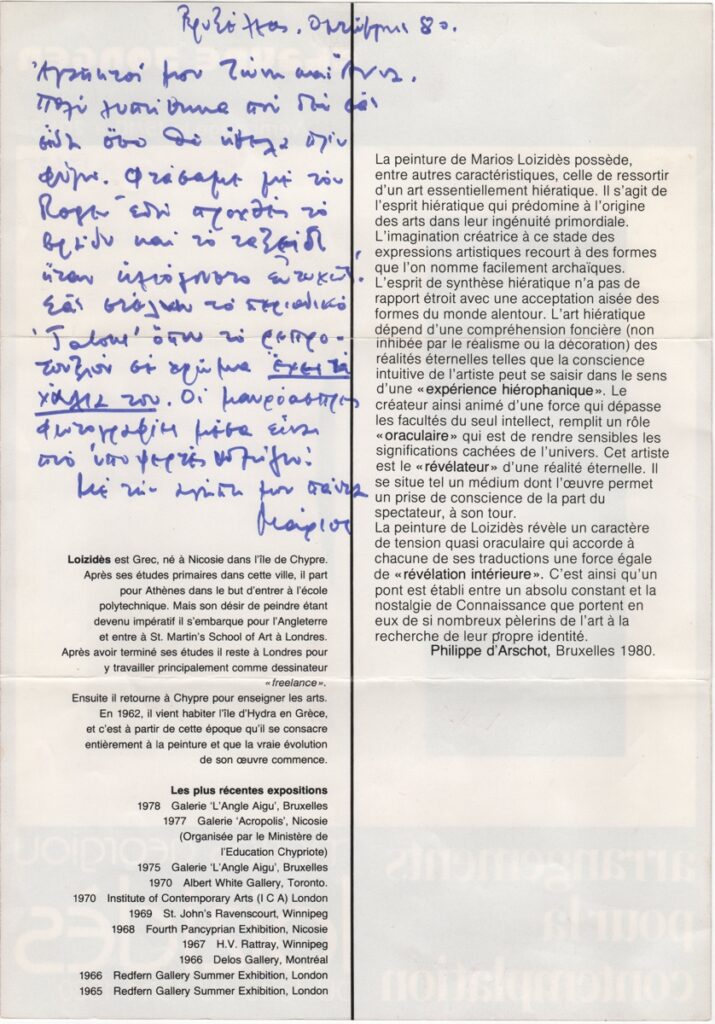 Βρυξέλλες. Οκτώβρης 80.
Αγαπητοί μου και
Πολύ λυπήθηκα που δεν σας
είδα όσο θα ήθελα πριν
φύγω. Φτάσαμε με τον
Roger εδώ προχθές το
βράδυ και το ταξείδι
ήταν ηλιόλουστο ευτυχώς!
Σας στέλνω το περιοδικό
όπου το ρεπρο-
τουξιόν σε χρώμα έχει τα
χάλια του. Οι μαυρόασπρες
φωτογραφίες μέσα είναι
πιο υποφερτές νομίζω!
Με την αγάπη μου πάντα
Μάριος
Loizidès est Grec, né à Nicosie dans l'île de Chypre.
Après ses études primaires dans cette ville, il part
pour Athènes dans le but d'entrer à l'école
polytechnique. Mais son désir de peindre étant
devenu impératif il s'embarque pour l'Angleterre
et entre à St. Martin's School of Art à Londres.
Après avoir terminé ses études il reste à Londres pour
y travailler principalement comme dessinateur
«freelance».
Ensuite il retourne à Chypre pour enseigner les arts.
En 1962, il vient habiter l'île d'Hydra en Grèce,
et c'est à partir de cette époque qu'il se consacre
entièrement à la peinture et que la vraie évolution
de son œuvre commence.
Les plus récentes expositions
1978 Galerie 'L'Angle Aigu', Bruxelles
1977 Galerie 'Acropolis', Nicosie
(Organisée par le Ministère de
l'Education Chypriote)
1975 Galerie 'L'Angle Aigu', Bruxelles
1970 Albert White Gallery, Toronto.
1970 Institute of Contemporary Arts (I C A) London
1969 St. John's Ravenscourt, Winnipeg
1968 Fourth Pancyprian Exhibition, Nicosie
1967 H.V. Rattray, Winnipeg
1966 Delos Gallery, Montréal
1966 Redfern Gallery Summer Exhibition, London
1965 Redfern Gallery Summer Exhibition, London
La peinture de Marios Loizidès possède,
entre autres caractéristiques, celle de ressortir
d'un art essentiellement hiératique. Il s'agit de
l'esprit hiératique qui prédomine à l'origine
des arts dans leur ingénuité primordiale.
L'imagination créatrice à ce stade des
expressions artistiques recourt à des formes
que l'on nomme facilement archaïques.
L'esprit de synthèse hiératique n'a pas de
rapport étroit avec une acceptation aisée des
formes du monde alentour. L'art hiératique
dépend d'une compréhension foncière (non
inhibée par le réalisme ou la décoration) des
réalités éternelles telles que la conscience
intuitive de l'artiste peut se saisir dans le sens
d'une «expérience hiérophanique». Le
créateur ainsi animé d'une force qui dépasse
les facultés du seul intellect, remplit un rôle
«oraculaire» qui est de rendre sensibles les
significations cachées de l'univers. Cet artiste
est le «révélateur» d'une réalité éternelle. Il
se situe tel un médium dont l'œuvre permet
un prise de conscience de la part du
spectateur, à son tour.
La peinture de Loizidès révèle un caractère
de tension quasi oraculaire qui accorde à
chacune de ses traductions une force égale
de «révélation intérieure». C'est ainsi qu'un
pont est établi entre un absolu constant et la
nostalgie de Connaissance que portent en
eux de si nombreux pèlerins de l'art à la
recherche de leur propre identité.
Philippe d'Arschot, Bruxelles 1980.